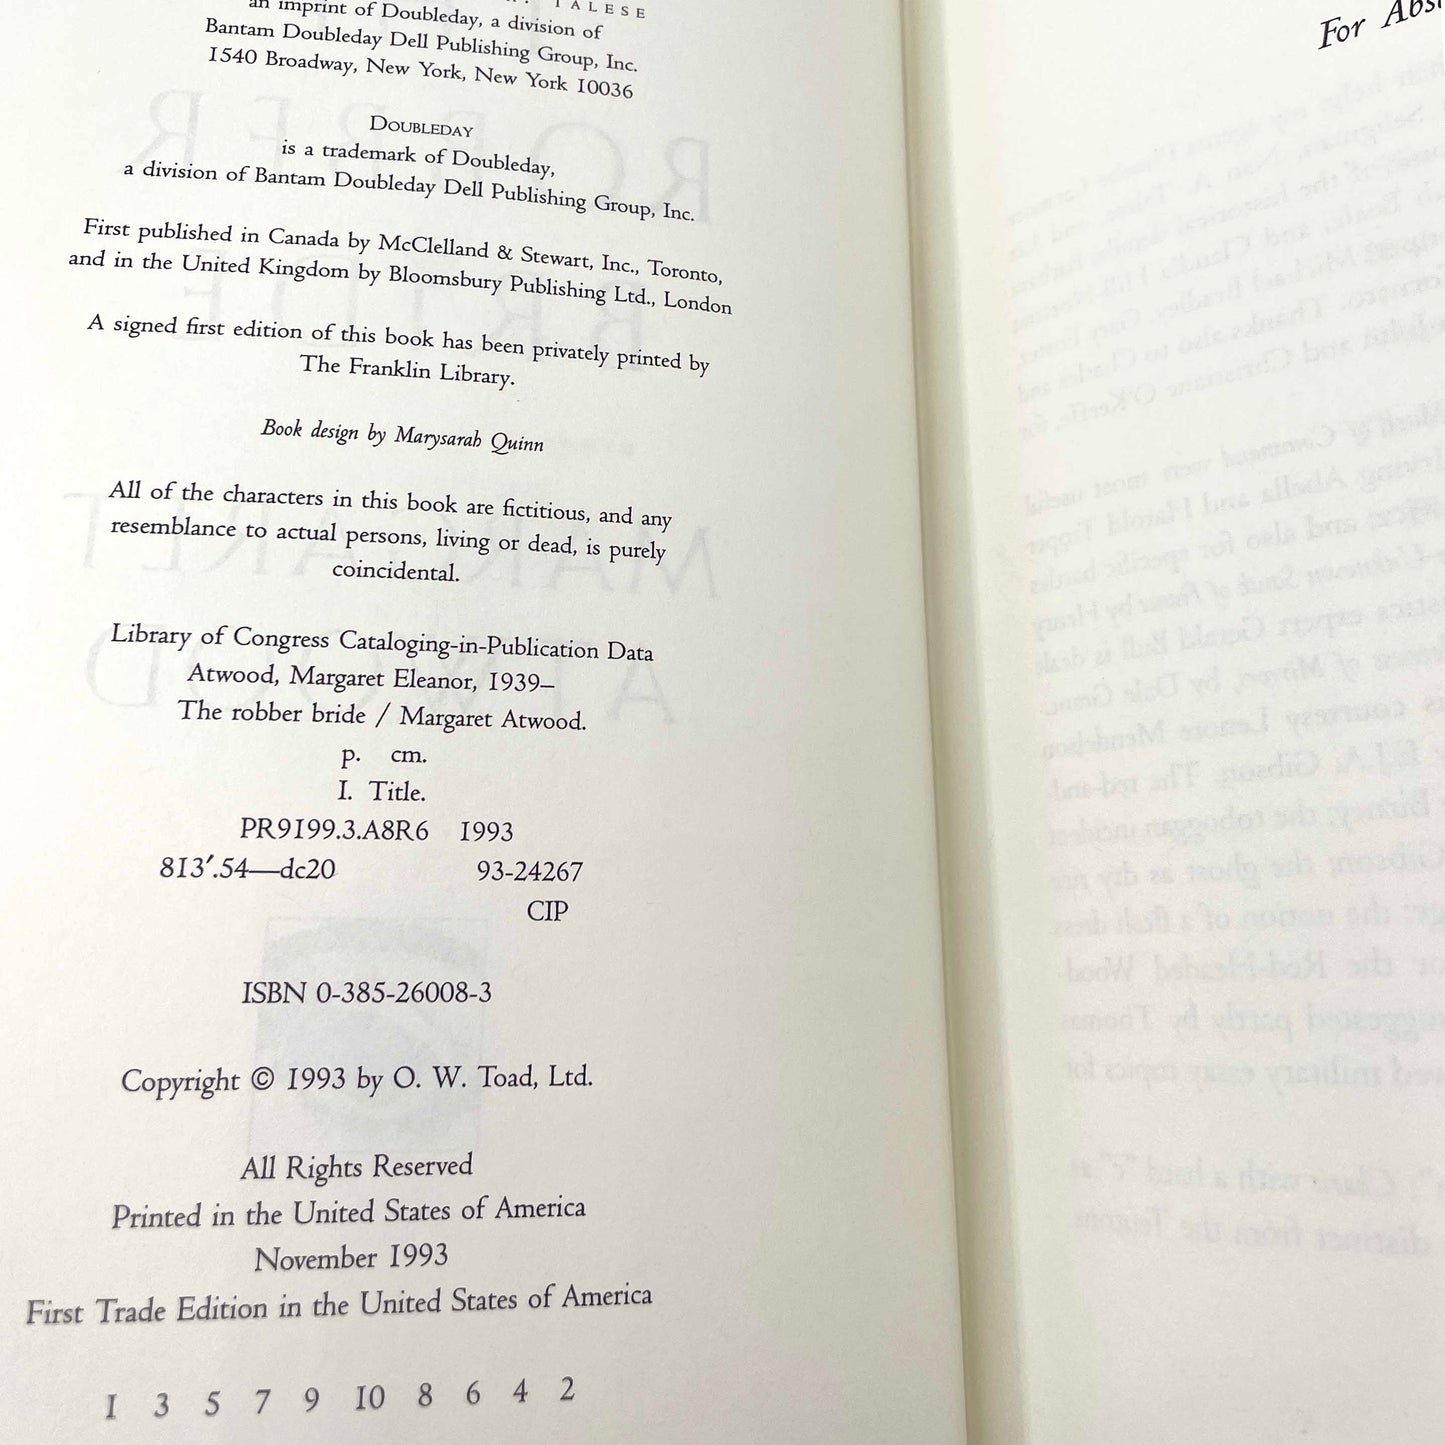 TALESE
an imprint of Doubleday, a division of
Bantam Doubleday Dell Publishing Group, Inc.
1540 Broadway, New York, New York 10036
DOUBLEDAY
is a trademark of Doubleday,
a division of Bantam Doubleday Dell Publishing Group, Inc.
First published in Canada by McClelland & Stewart, Inc., Toronto,
and in the United Kingdom by Bloomsbury Publishing Ltd., London
A signed first edition of this book has been privately printed by
The Franklin Library.
Book design by Marysarah Quinn
All of the characters in this book are fictitious, and any
resemblance to actual persons, living or dead, is purely
coincidental.
Library of Congress Cataloging-in-Publication Data
Atwood, Margaret Eleanor, 1939–
The robber bride / Margaret Atwood.
p. cm.
I. Title.
PR9199.3.A8R6 1993
813′.54—dc20 93-24267
CIP
ISBN 0-385-26008-3
Copyright © 1993 by O. W. Toad, Ltd.
All Rights Reserved
Printed in the United States of America
November 1993
First Trade Edition in the United States of America
1 3 5 7 9 10 8 6 4 2
For